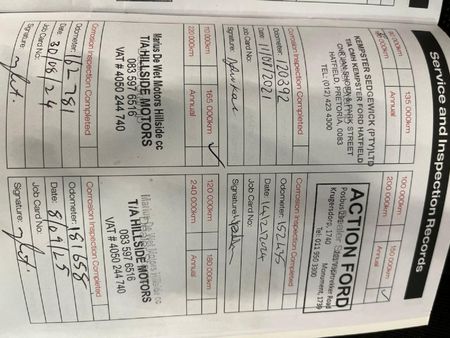 Service and Inspection Records
135 000km
Annual
KEMPSTER SEDGEWICK (PTY) LTD
T/A CMH KEMPSTER FORD HATFIELD
CNR JAN SHOBA & PARK STREET
HATFIELD, PRETORIA, 0083
TEL: (012) 423 4300
Corrosion Inspection Completed
Odometer: 120392
Date: 11/01/2021
Job Card No:
Signature:
100 000km
150 000km
200 000km
Annual
ACTION FORD
Krugersdorp, 1740
Monument, 1739
Tel: 011 950 3300
Corrosion Inspection Completed
Odometer: 157495
Date: 14/2/2024
Job Card No:
Signature:
110 000km
165 000km
220 000km
Annual
Marius De Wet Motors Hillside cc
T/A HILLSIDE MOTORS
083 597 6516
VAT # 4050 244 740
Corrosion Inspection Completed
Odometer: 162 781
Date: 30/08/24
Job Card No:
Signature:
120 000km
180 000km
240 000km
Annual
Marius De Wet Motors Hillside cc
T/A HILLSIDE MOTORS
083 597 6516
VAT # 4050 244 740
Corrosion Inspection Completed
Odometer: 181658
Date: 8/09/25
Job Card No:
Signature: